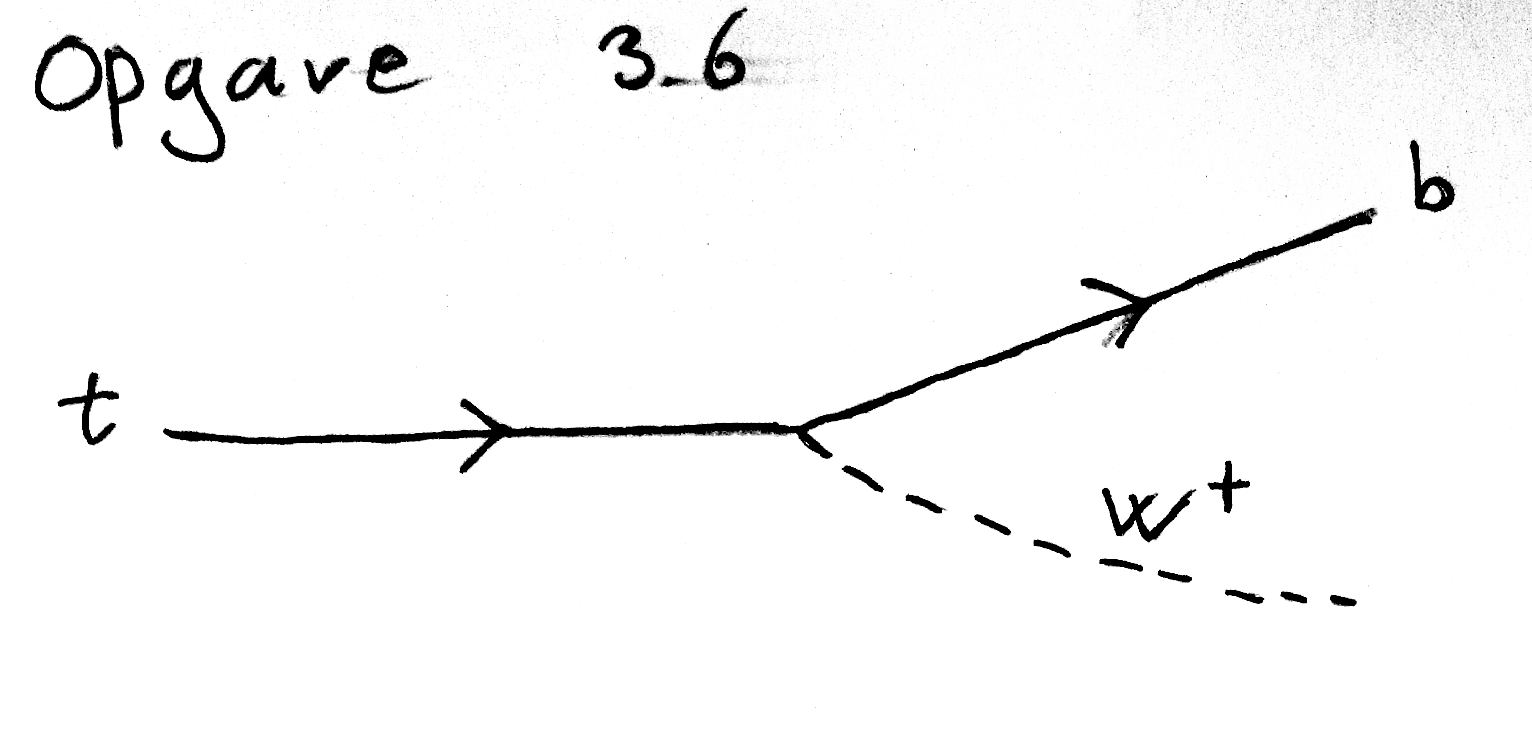 Opgave 3.6
b
t
W+